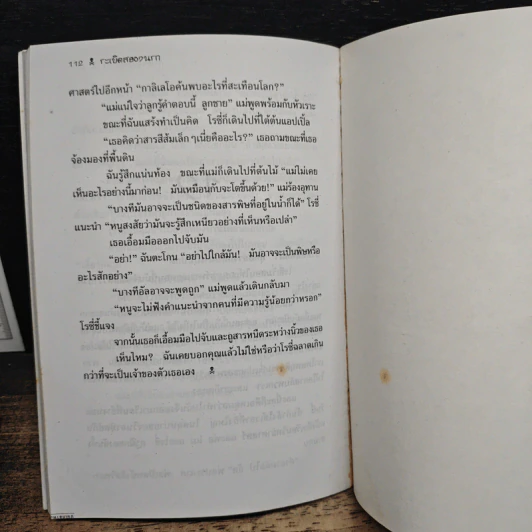 112
ศาสตร์ไปอีกหน้า “กาลิเลโอค้นพบอะไรที่สะเทือนโลก?”
“แม่แน่ใจว่าลูกรู้คำตอบนี้ ลูกชาย” แม่พูดพร้อมกับหัวเราะ
ขณะที่ฉันแสร้งทำเป็นคิด โรซี่ก็เดินไปที่ใต้ต้นแอปเปิ้ล
“เธอคิดว่าสารสีส้มเล็กๆ เนี่ยคืออะไร?” เธอถามขณะที่เธอ
จ้องมองที่พื้นดิน
ฉันรู้สึกแน่นท้อง ขณะที่แม่ก็เดินไปที่ต้นไม้ “แม่ไม่เคย
เห็นอะไรอย่างนี้มาก่อน! มันเหมือนกับจะโตขึ้นด้วย!” แม่ร้องอุทาน
“บางทีมันอาจจะเป็นชนิดของสารพิษที่อยู่ในน้ำก็ได้” โรซี่
แนะนำ “หนูสงสัยว่ามันจะรู้สึกเหนียวอย่างที่เห็นหรือเปล่า”
เธอเอื้อมมือออกไปจับมัน
“อย่า!” ฉันตะโกน “อย่าไปใกล้มัน! มันอาจจะเป็นพิษหรือ
อะไรสักอย่าง”
“บางทีอัลอาจจะพูดถูก” แม่พูดแล้วเดินกลับมา
“หนูจะไม่ฟังคำแนะนำจากคนที่มีความรู้น้อยกว่าหรอก”
โรซี่ชี้แจง
จากนั้นเธอก็เอื้อมมือไปจับและถูสารหนืดระหว่างนิ้วของเธอ
เห็นไหม? ฉันเคยบอกคุณแล้วไม่ใช่หรือว่าโรซี่ฉลาดเกิน
กว่าที่จะเป็นเจ้าของตัวเธอเอง